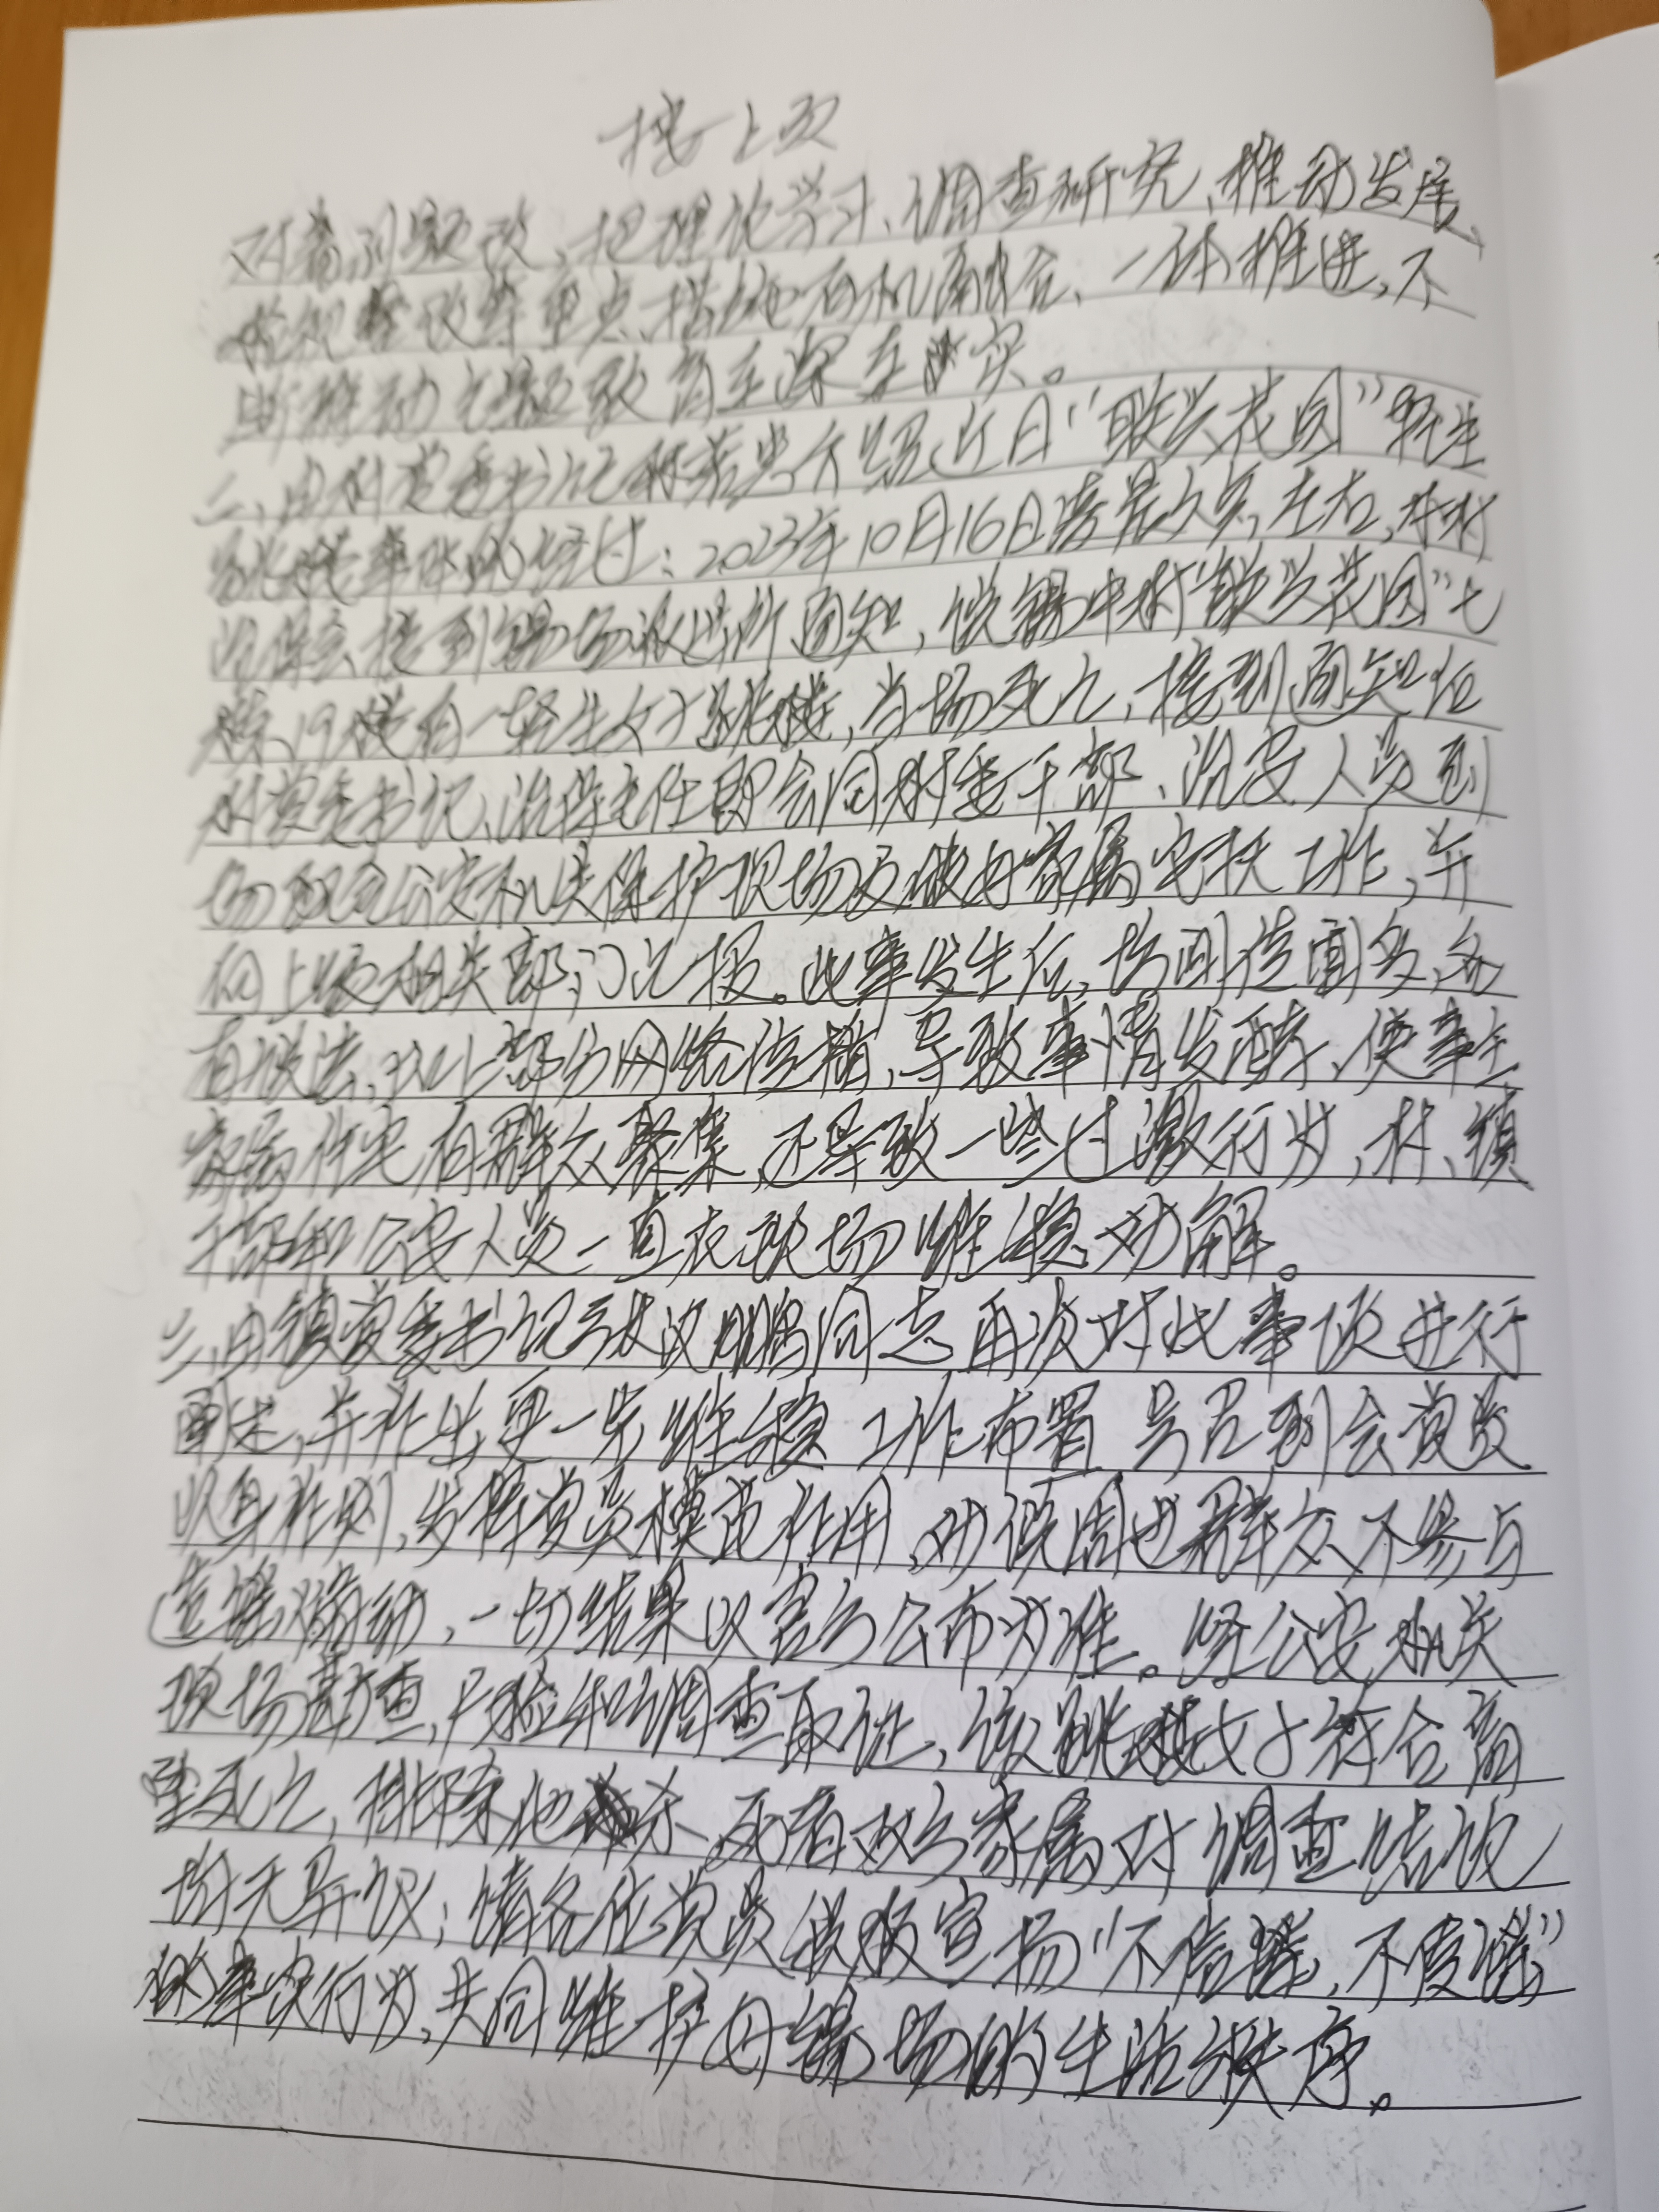 接上页
对着问题改，把理论学习、调查研究、推动发展、
检视整改等重点措施有机融合、一体推进，不
断推动主题教育走深走实。
二、由村党委书记 介绍近日“联兴花园”轻生
跳楼事件的经过：2023年10月16日凌晨 左右，本村
治保主接到 场派出所通知，位 中村“联兴花园”七
楼 19楼有一轻生女子跳楼，当场死亡，接到通知后
村党委书记、治保主任即会同村委干部、治安人员到
场配合公安机关保护现场及做好家属安抚工作，并
向上级相关部门汇报。此事发生后，坊间传闻多，各
有说法，加上部分网络传播，导致事情发酵，使事主
家属住宅有群众聚集，还导致一些过激行为，村、镇
干部和公安人员一直在现场维稳劝解。
三、由镇党委书记 汉明同志再次对此事件进行
阐述，并作出更一步维稳工作布置 号召到会党员
以身作则，发挥党员模范作用，劝诫周边群众不参与
造谣煽动，一切结果以官方公布为准。经公安机关
现场勘查，尸检和调查取证，该跳楼女子符合高
坠死亡，排除他杀，死者双方家属对调查结论
均无异议；请各位党员积极宣扬“不信谣，不传谣”
的事实行为，共同维护好 场的生活秩序。